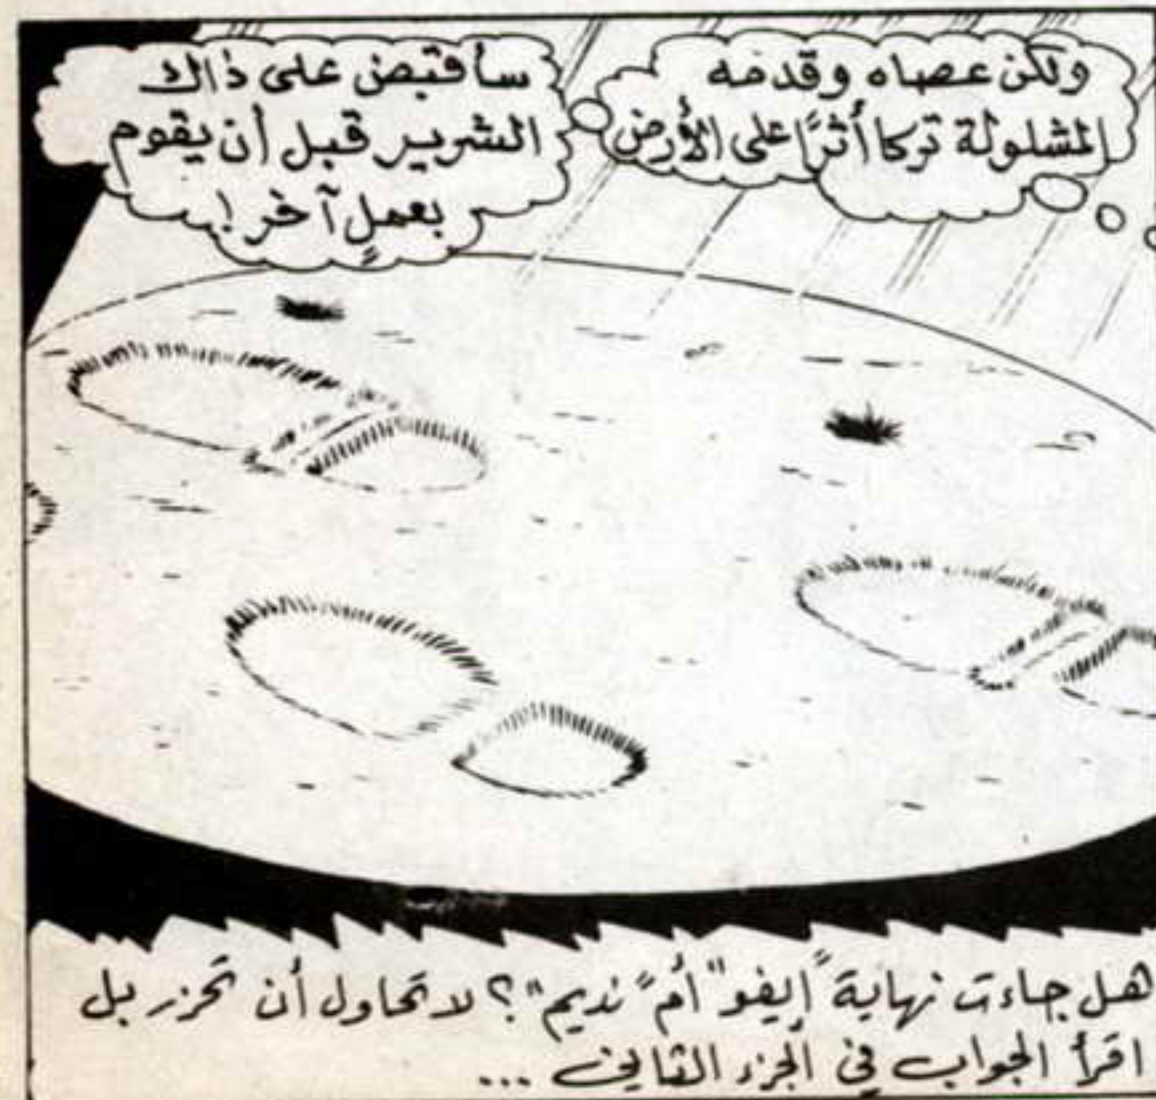 ولكن عصاه وقدمه
المشلولة تركا أثرًا على الأرض
سأقبض على ذاك
الشرير قبل أن يقوم
بعملٍ آخر!
هل جاءت نهاية "إيفو" أم "نديم"؟ لا تحاول أن تحزر بل
اقرأ الجواب في الجزء الثاني ...